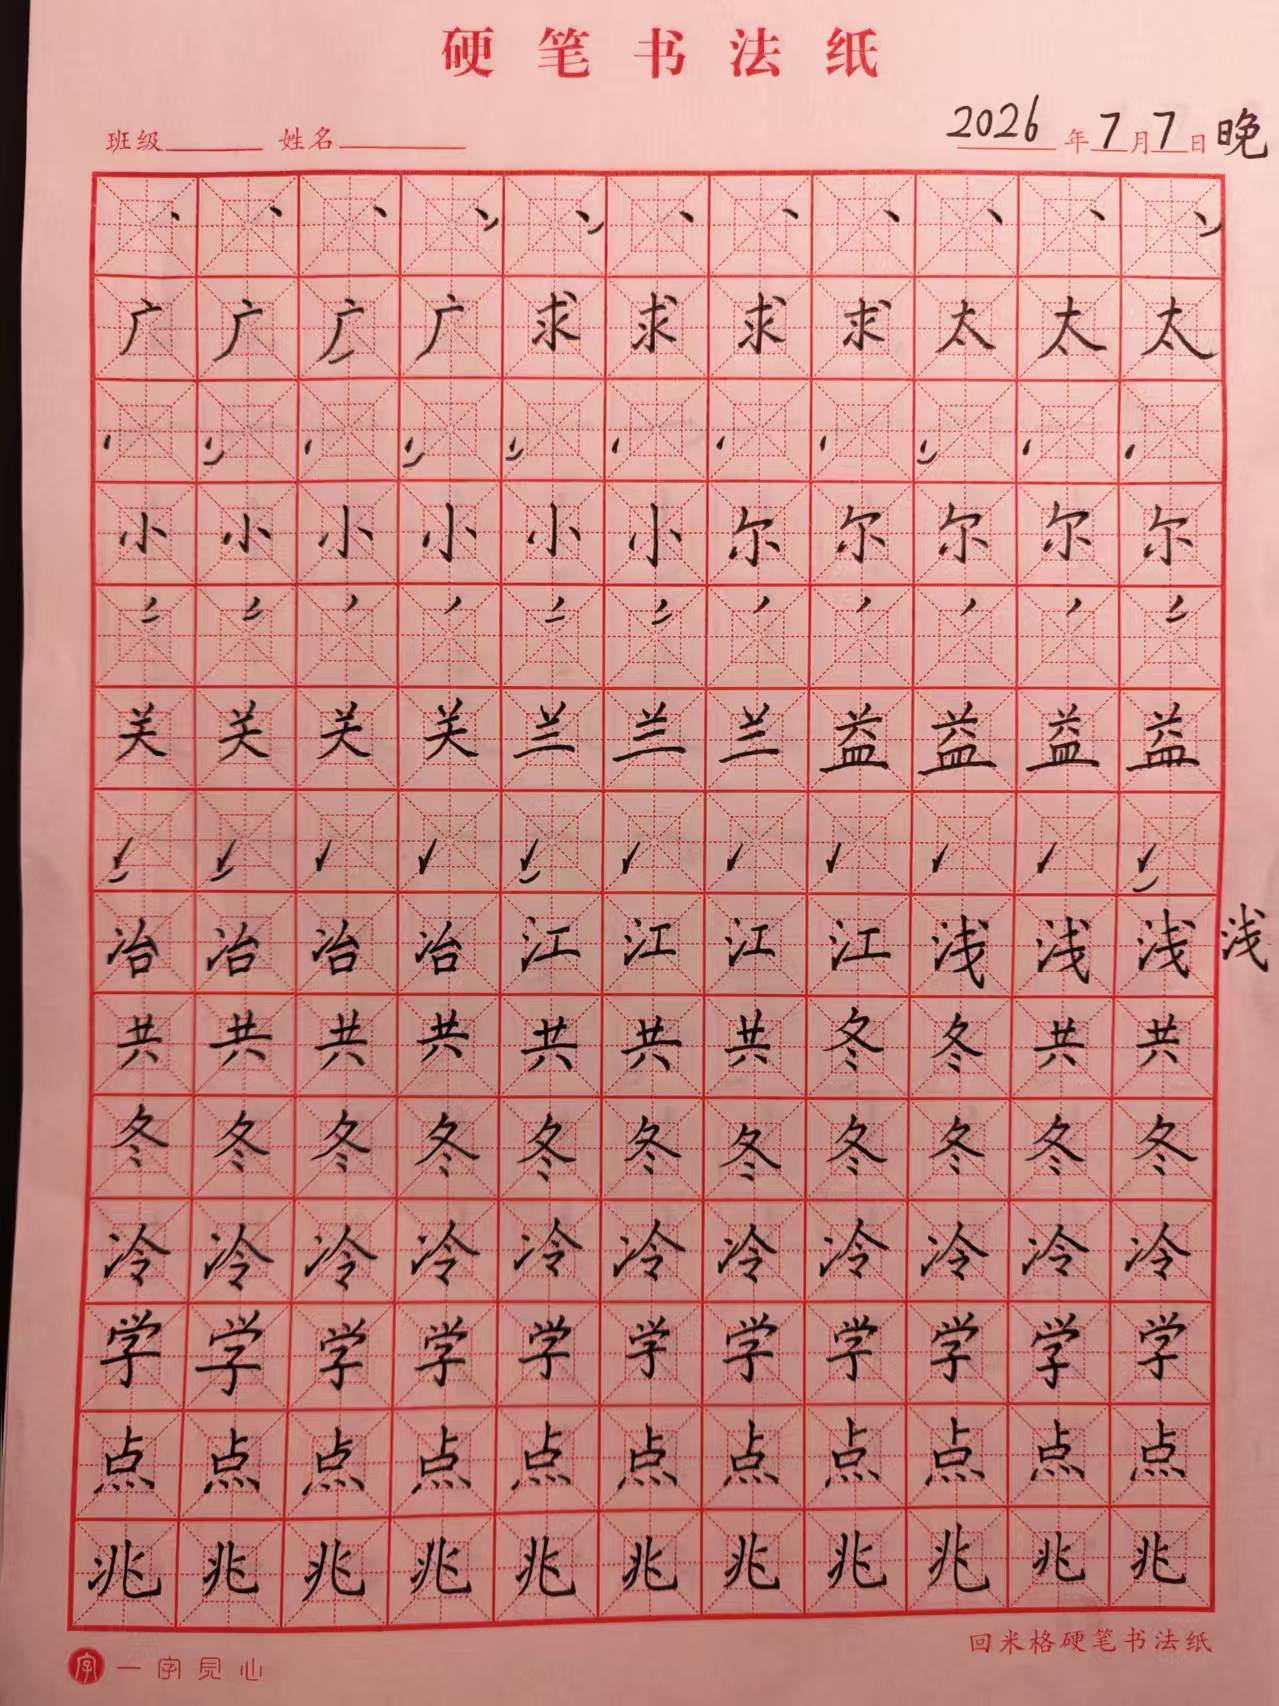 硬笔书法纸
班级 姓名 2026年7月7日晚
丶丶丶丶丶丶丶丶丶丶丶
广广广广求求求求太太太
小小小小小小尔尔尔尔尔
关关关关兰兰兰益益益益
冶冶冶冶江江江江浅浅浅浅
共共共共共共共冬冬共共
冬冬冬冬冬冬冬冬冬冬冬
冷冷冷冷冷冷冷冷冷冷冷
学学学学学学学学学学学
点点点点点点点点点点点
兆兆兆兆兆兆兆兆兆兆兆
回米格硬笔书法纸
字 一字见心